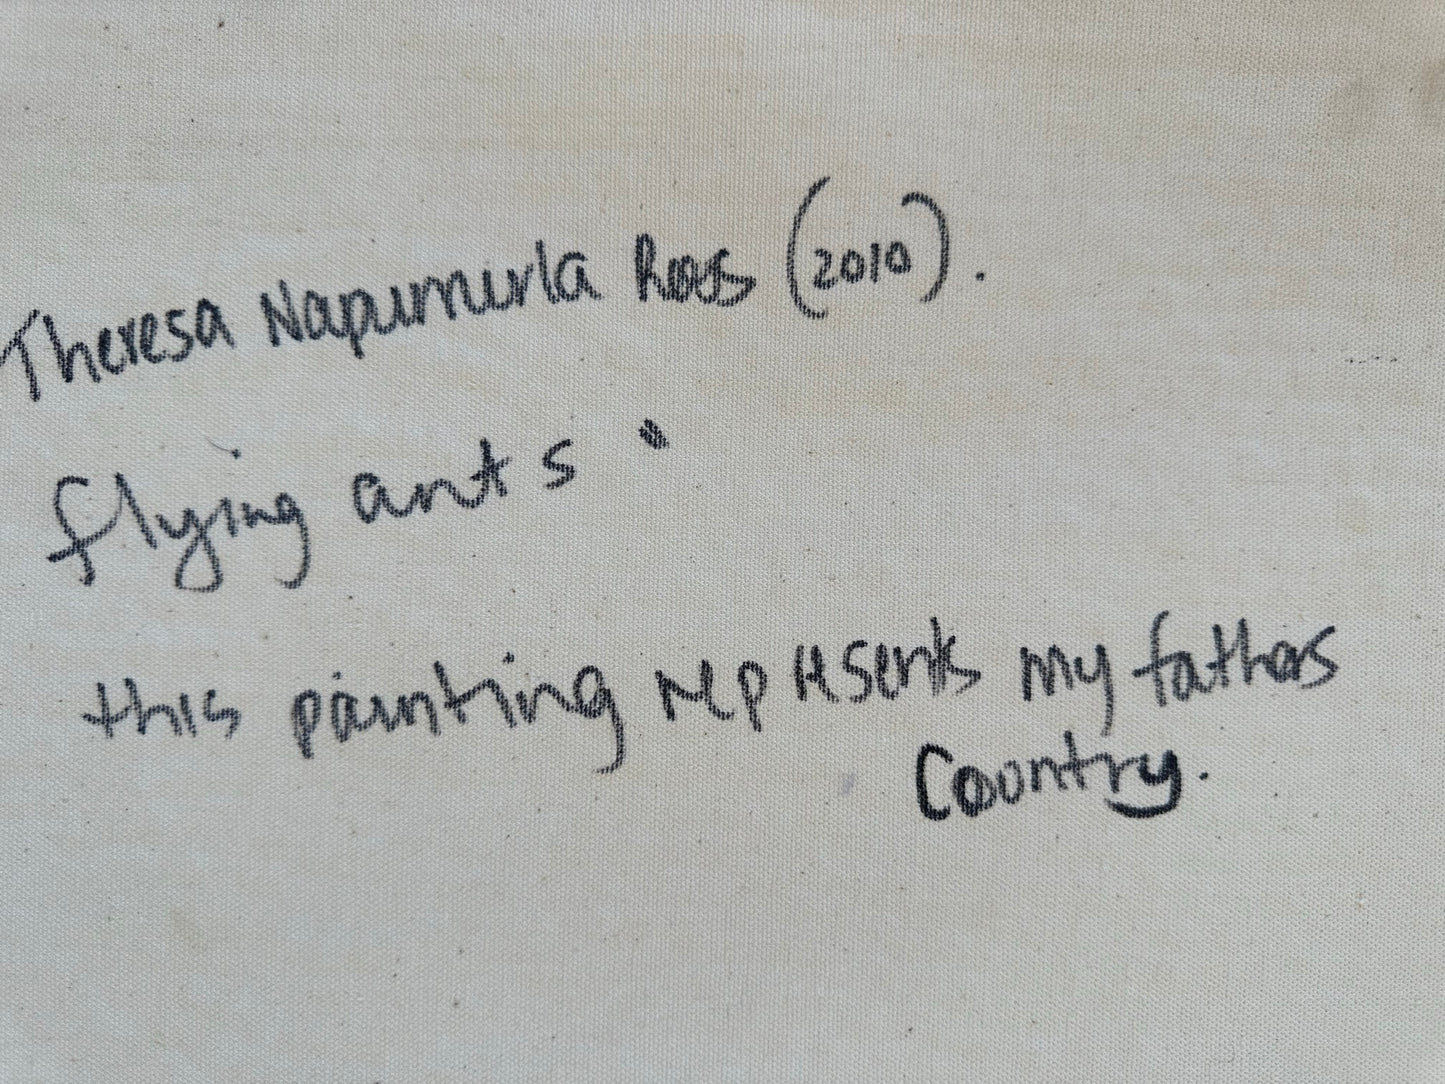 Theresa Napurrurla Ross (2010).
flying ants .
this painting represents my fathers
Country.